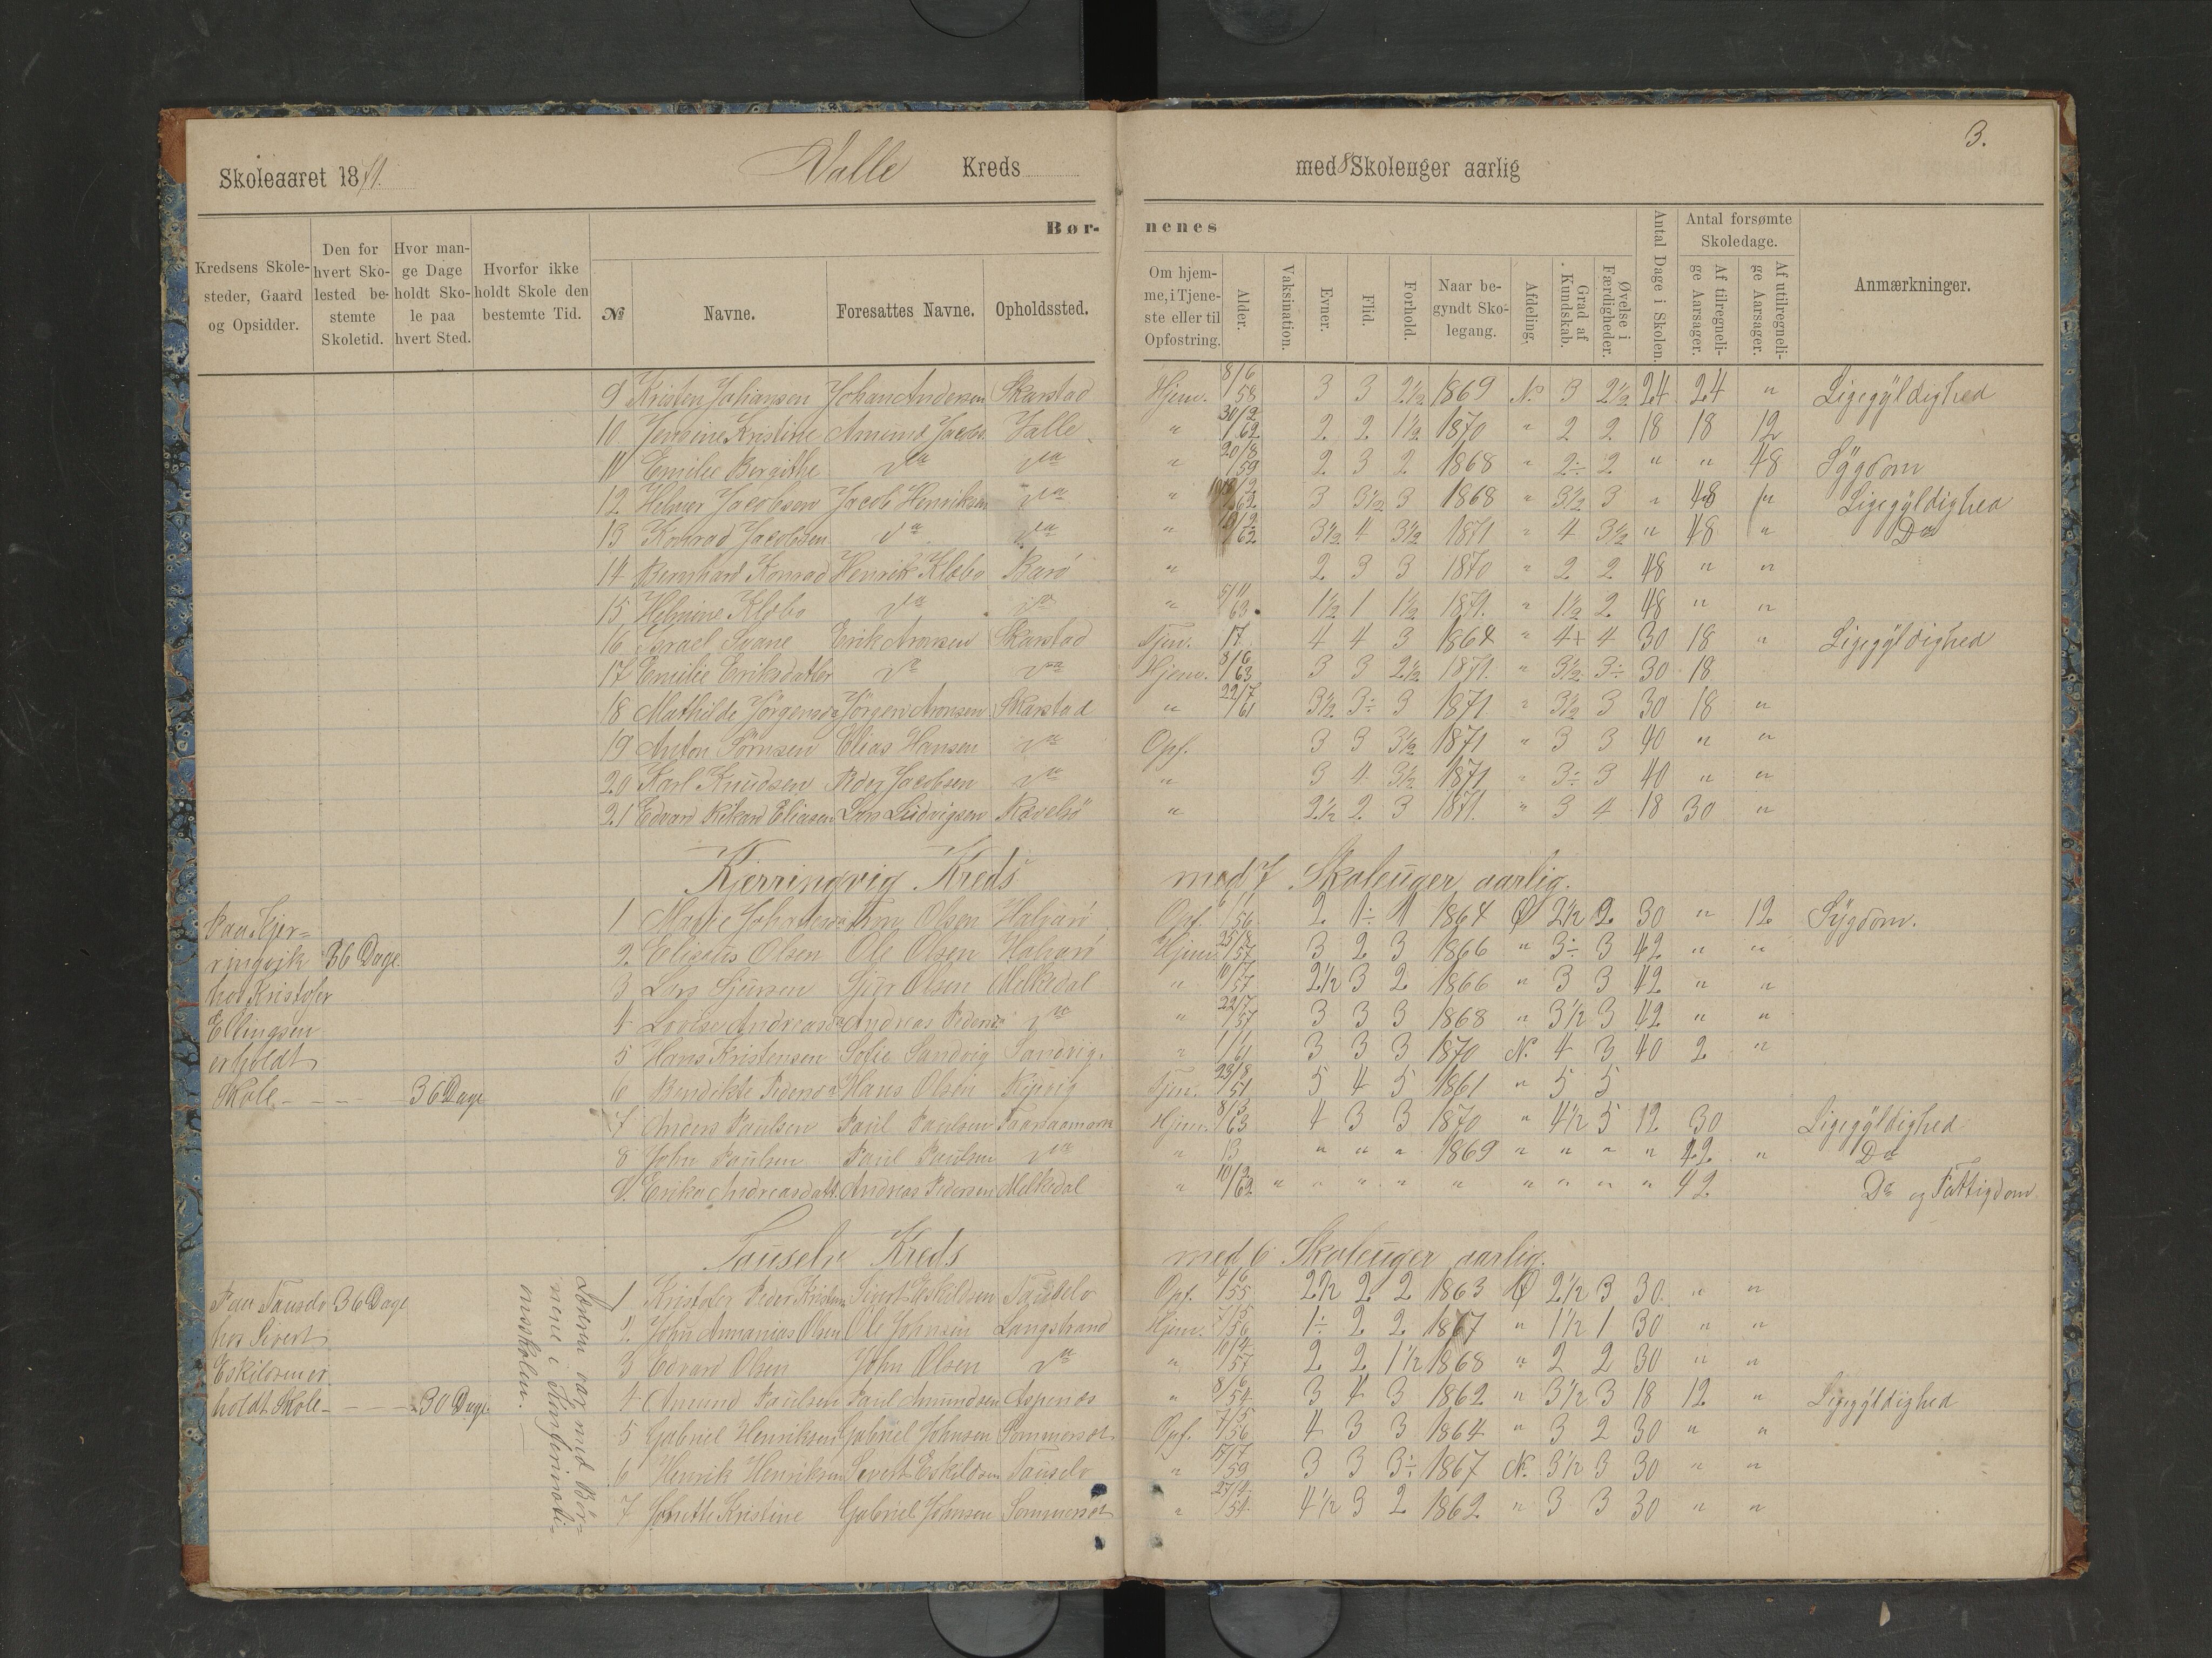 3.
Skoleaaret 1871. Valle Kreds med 8 Skoleuger aarlig
Kredsens Skolesteder, Gaard og Opsidder.
Den for hvert Skolested bestemte Skoletid.
Hvor mange Dage holdt Skole paa hvert Sted.
Hvorfor ikke holdt Skole den bestemte Tid.
Børnenes
№ Navne. Foresattes Navne. Opholdssted.
Om hjemme, i Tjeneste eller til Opfostring.
Alder. Vaksination. Evner. Flid. Forhold.
Naar begyndt Skolegang.
Afdeling. Grad af Kundskab. Øvelse i Færdigheder.
Antal Dage i Skolen.
Antal forsømte Skoledage.
Af tilregnelige Aarsager. Af utilregnelige Aarsager.
Anmærkninger.
9 Kristen Johansen Johan Andersen Skarstad Hjem. 8/6 58 3 3 2½ 1869 N. 3 2½ 24 24 " Ligegyldighed
10 Kristine Amund Jacobs. Valle " 30/2 62 2 2 1½ 1870 " 2 2 18 18 12
11 Emilie Bergithe Do Do " 20/8 59 2 3 2 1868 " 2÷ 2 " " 48 Sygdom
12 Helmer Jacobsen Jacob Henriksen Do " 3 3½ 3 1868 " 3½ 3 " 48 " Ligegyldighed
13 Konrad Jacobsen Do Do " 62 3½ 4 3½ 1871 " 4 3½ " 48 " Do
14 Bernhard Konrad Henrik Klæbo Barø " 2 3 3 1870 " 2 2 48 " "
15 Helmine Klæbo Do Do " 5/11 63 1½ 1 1½ 1871. " 1½ 2 48 " "
16 Israel Svane Erik Aronsen Skarstad Tjen. 17 4 4 3 1864 " 4+ 4 30 18 " Ligegyldighed
17 Emilie Eriksdatter Do Do Hjem. 8/6 63 3 3 2½ 1871. " 3½ 3÷ 30 18
18 Mathilde Jörgensd. Jörgen Aronsen Skarstad " 22/7 61 3½ 3÷ 3 1871 " 3½ 3 30 18 "
19 Anton Elias Hansen Do Opf. 3 3 3½ 1871 " 3 3 40 " "
20 Karl Knudsen Peder Jacobsen Do " 3 4 3½ 1871. " 3÷ 3 40 " "
21 Edvard Rikard Eliasen Lars Ludvigsen " 2½ 2 3 1871. " 3 4 18 30 "
Kjerringvig Kreds med 7 Skoleuger aarlig.
Paa Kjer=
ringvik 36 Dage
hos Kristofer
Ellingsen
er holdt
Skole - - - - 36 Dage
1 Olsen Halvarö Opf. 6/1 56 2 1÷ 1 1864 Ø 2½ 2 30 " 12 Sygdom.
2 Olsen Ole Olsen Halvarö Hjem. 25/8 57 3 2 3 1866 " 3÷ 3 42 " "
3 Lars Sjursen Sjur Olsen Melkedal " 57 2½ 3 2 1866 " 3 3 42 " "
4 Lovise Andreasd. Andreas Peders. Do " 22/7 57 3 3 3 1868 " 3½ 3 42 " "
5 Hans Kristensen Sofie Sandvig Sandvig. " 1/1 61 3 3 3 1870 N. 4 3 40 2 "
6 Bendikte Pedersd. Hans Olsen Tjen. 23/8 51 5 4 5 1861 " 5 5
7 Anders Paulsen Paul Paulsen Hjem. 8/3 63 4 3 3 1870 " 4½ 5 12 30 Ligegyldighed
8 John Paulsen Paul Paulsen Do " 13 " " " 1869 " " " " 42 " Do
9. Erika Andreasdatt. Andreas Pedersen Melkedal " 10/2 62 " " " " " " " " " 42 Do og Fattigdom
Tauselv Kreds med 6 Skoleuger aarlig.
Paa Tauselv 36 Dage
hos Sivert
Eskildsen er
holdt Skole - - - - 30 Dage.
Læreren var med Bør=
nene i Konfirmati=
onsskolen.
1 Kristofer Peder Kristens. Sivert Eskildsen Tauselv Opf. 4/6 55 2½ 2 2 1863 Ø 2½ 3 30 " "
2. John Annanias Olsen Ole Johnsen Langstrand Hjem. 7/5 56 1÷ 2 2 1867 " 1½ 1 30 " "
3 Edvard Olsen John Olsen Do " 10/4 57 2 2 1½ 1868 " 2 2 30 " "
4 Amund Paulsen Paul Amundsen Aspenes " 8/6 54 3 4 3 1862 " 3½ 3 18 12 " Ligegyldighed
5 Gabriel Henriksen Gabriel Johnsen Sommerset Opf. 7/5 56 4 3 3 1864 " 3 2 30 " "
6 Henrik Henriksen Sivert Eskildsen Tauselv " 17/7 59 3 3 3÷ 1867 N. 3½ 3 30 " "
7 Johette Kristine Gabriel Johnsen Sommerset " 27/2 54 4½ 3 2 1862 " 3 3 30 " "